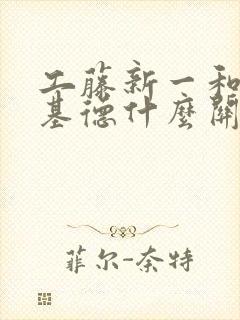 工藤新一和
基德什麼關
菲尔-奈特